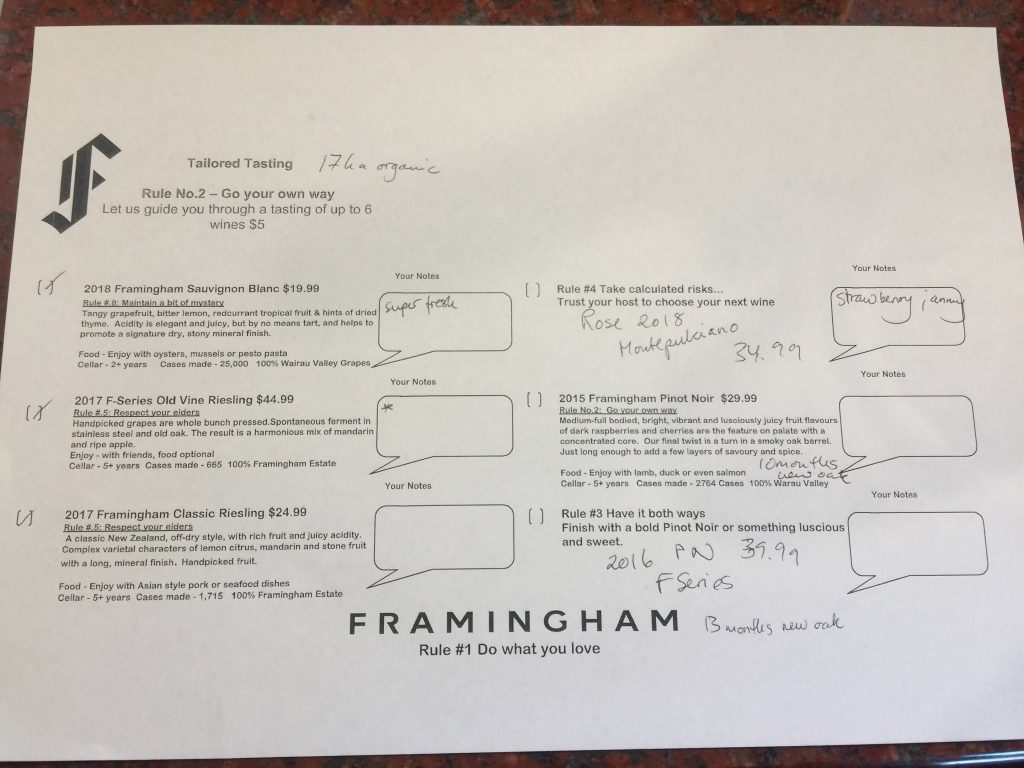 Tailored Tasting 17ha organic
Rule No.2 – Go your own way
Let us guide you through a tasting of up to 6
wines $5
Your Notes
2018 Framingham Sauvignon Blanc $19.99
Rule #.8: Maintain a bit of mystery
Tangy grapefruit, bitter lemon, redcurrant tropical fruit & hints of dried
thyme. Acidity is elegant and juicy, but by no means tart, and helps to
promote a signature dry, stony mineral finish.
Food - Enjoy with oysters, mussels or pesto pasta
Cellar - 2+ years Cases made - 25,000 100% Wairau Valley Grapes
super fresh
Your Notes
2017 F-Series Old Vine Riesling $44.99
Rule #.5: Respect your elders
Handpicked grapes are whole bunch pressed.Spontaneous ferment in
stainless steel and old oak. The result is a harmonious mix of mandarin
and ripe apple.
Enjoy - with friends, food optional
Cellar - 5+ years Cases made - 665 100% Framingham Estate
*
Your Notes
2017 Framingham Classic Riesling $24.99
Rule #.5: Respect your elders
A classic New Zealand, off-dry style, with rich fruit and juicy acidity.
Complex varietal characters of lemon citrus, mandarin and stone fruit
with a long, mineral finish. Handpicked fruit.
Food - Enjoy with Asian style pork or seafood dishes
Cellar - 5+ years Cases made - 1,715 100% Framingham Estate
Your Notes
[ ] Rule #4 Take calculated risks...
Trust your host to choose your next wine
Rose 2018
Montepulciano
34.99
strawberry jammy
Your Notes
[ ] 2015 Framingham Pinot Noir $29.99
Rule No.2: Go your own way
Medium-full bodied, bright, vibrant and lusciously juicy fruit flavours
of dark raspberries and cherries are the feature on palate with a
concentrated core. Our final twist is a turn in a smoky oak barrel.
Just long enough to add a few layers of savoury and spice.
10 months
new oak
Food - Enjoy with lamb, duck or even salmon
Cellar - 5+ years Cases made - 2764 Cases 100% Warau Valley
Your Notes
[ ] Rule #3 Have it both ways
Finish with a bold Pinot Noir or something luscious
and sweet.
2016 PN 39.99
F Series
FRAMINGHAM 13 months new oak
Rule #1 Do what you love